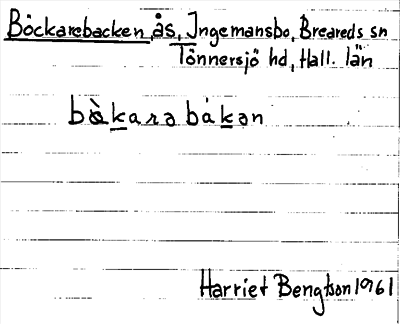 Böckarebacken, ås, Ingemansbo, Breareds sn
Tönnersjö hd, Hall. län
bɵ̀karə bákən
Harriet Bengtson 1961